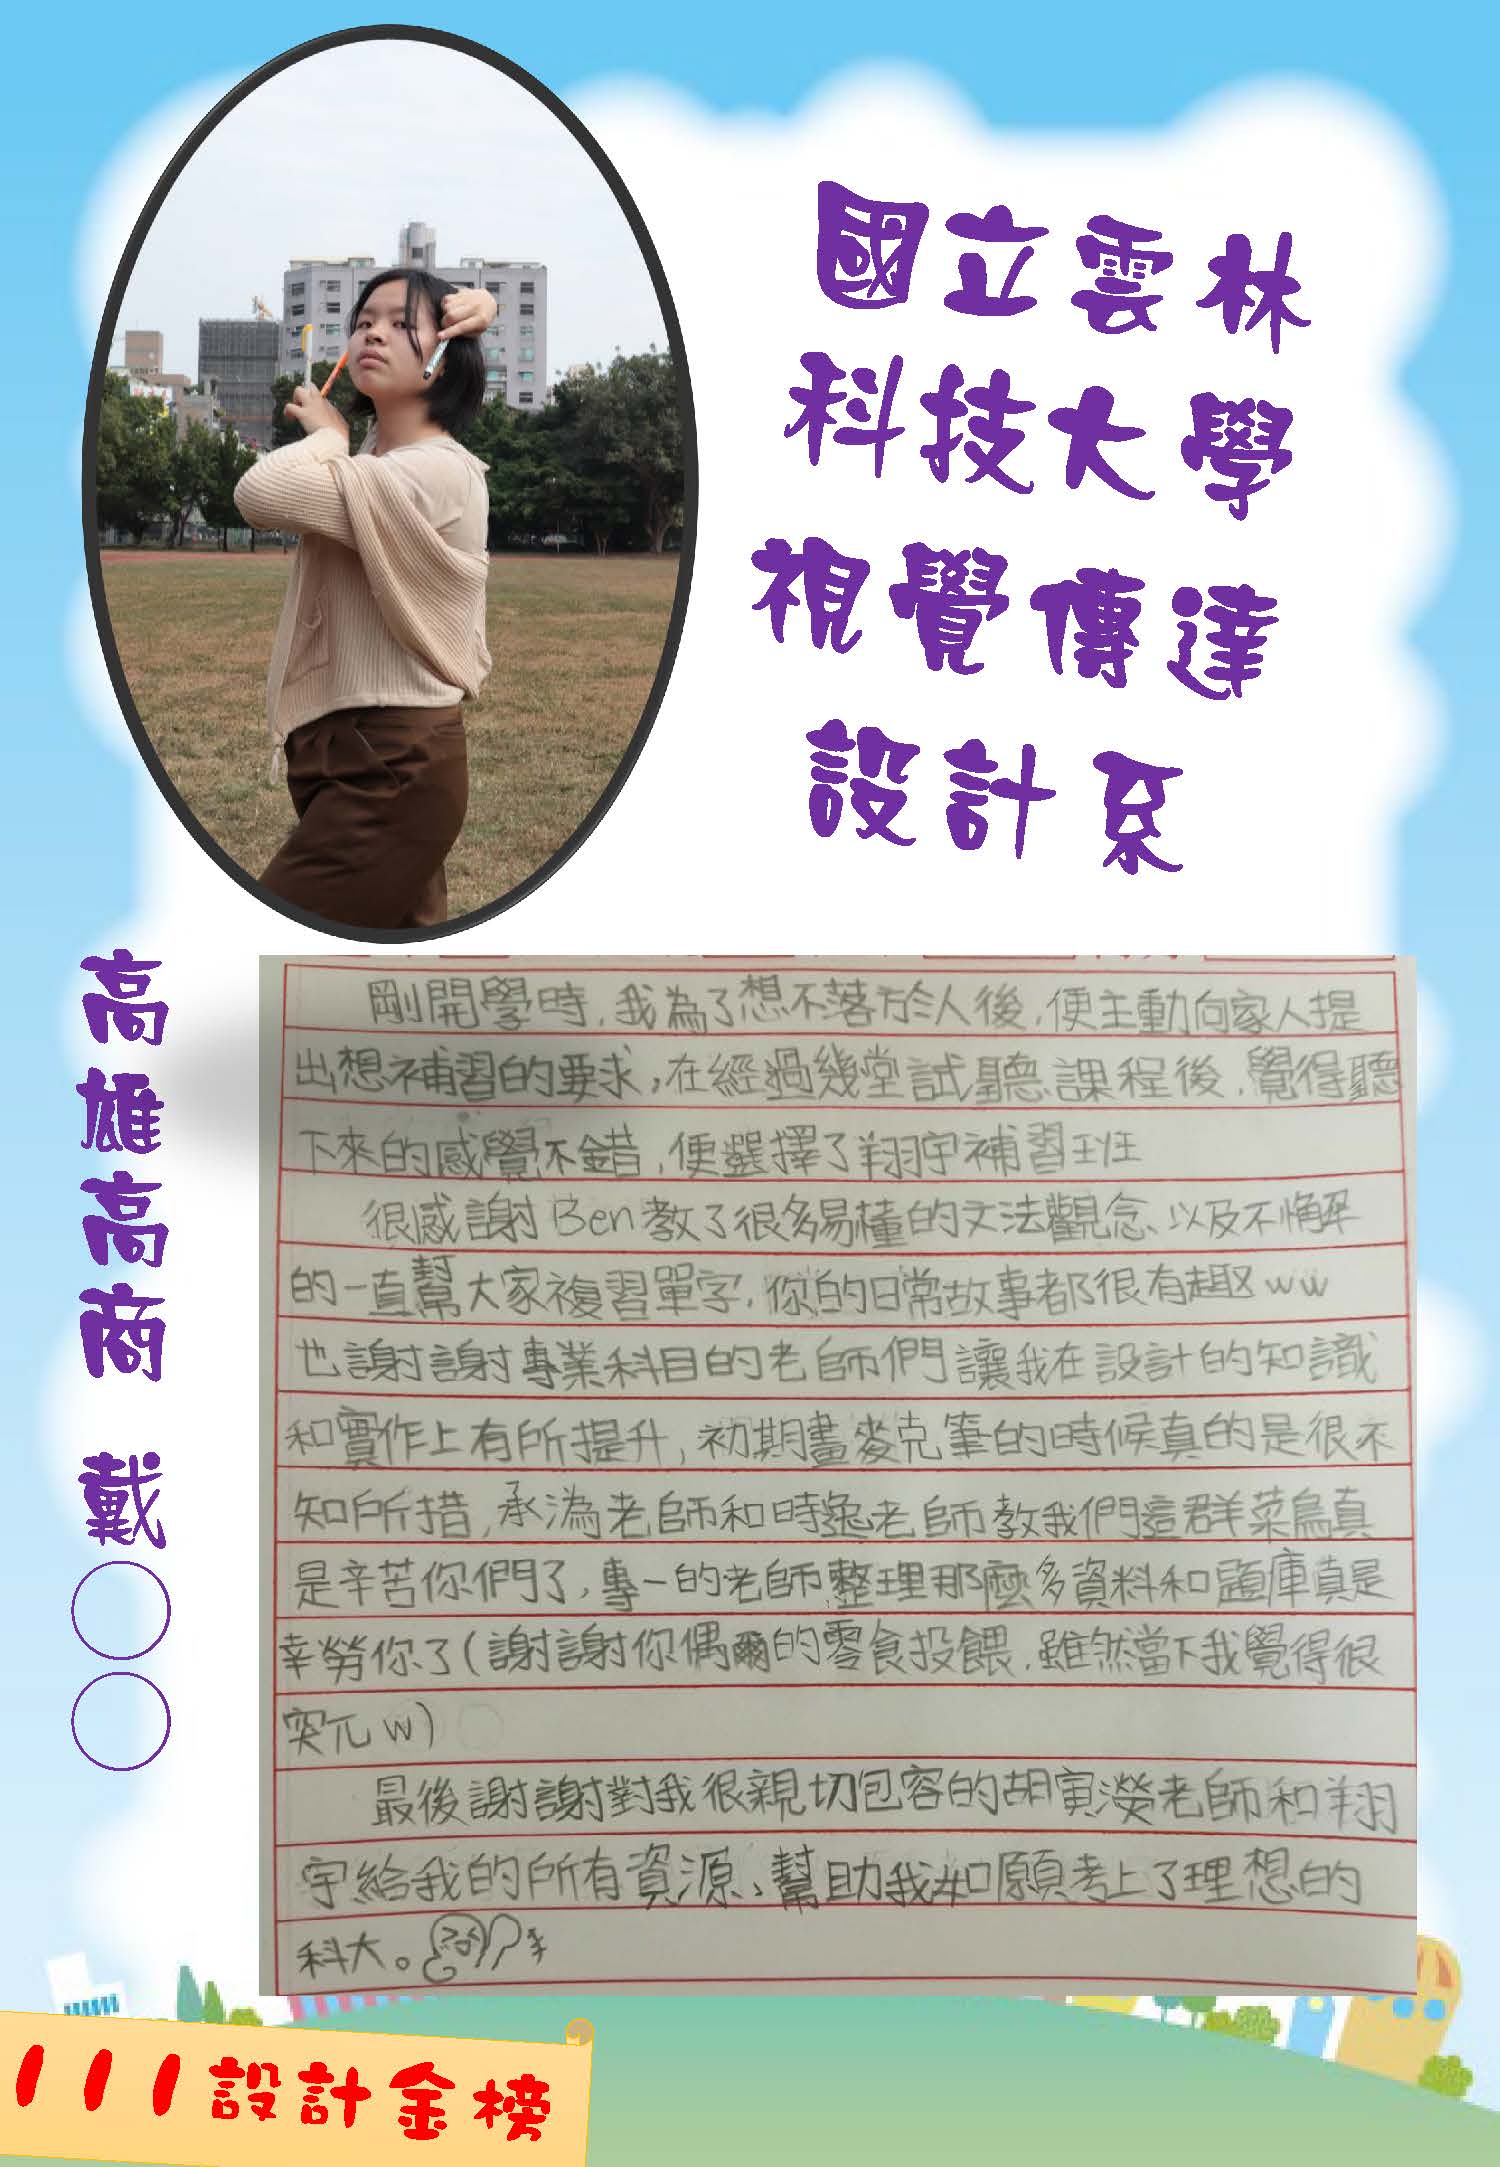 國立雲林
科技大學
視覺傳達
設計系
高雄高商 戴○○
剛開學時,我為了想不落於人後,便主動向家人提
出想補習的要求,在經過幾堂試聽課程後,覺得聽
下來的感覺不錯,便選擇了翔宇補習班
很感謝Ben教了很多易懂的文法觀念、以及不懈
的一直幫大家複習單字,你的日常故事都很有趣ww
也謝謝專業科目的老師們讓我在設計的知識
和實作上有所提升,初期畫麥克筆的時候真的是很不
知所措,承溈老師和時逸老師教我們這群菜鳥真
是辛苦你們了,專一的老師整理那麼多資料和題庫真是
幸勞你了(謝謝你偶爾的零食投餵,雖然當下我覺得很
突兀w)
最後謝謝對我很親切包容的胡寅濙老師和翔
宇給我的所有資源、幫助我如願考上了理想的
科大。
111設計金榜